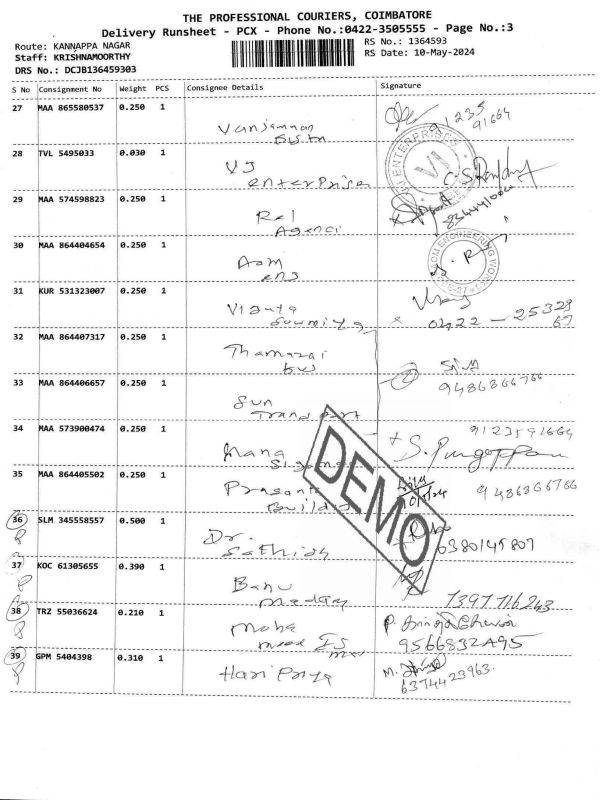 THE PROFESSIONAL COURIERS, COIMBATORE
Delivery Runsheet - PCX - Phone No.:0422-3505555 - Page No.:3
Route: KANNAPPA NAGAR
RS No.: 1364593
Staff: KRISHNAMOORTHY
RS Date: 10-May-2024
DRS No.: DCJB136459303
S No Consignment No Weight PCS Consignee Details Signature
27 MAA 865580537 0.250 1
28 TVL 5495033 0.030 1 VJ
enterprise
VJ ENTERPRISES
29 MAA 574598823 0.250 1
30 MAA 864404654 0.250 1 Aom
eng
OM ENGINEERING WORKS
31 KUR 531323007 0.250 1
0422 - 25329
32 MAA 864407317 0.250 1 Thamarai
Siva
9486866766
33 MAA 864406657 0.250 1 Sun
Transport
34 MAA 573900474 0.250 1 Mana
9123591664
35 MAA 864405502 0.250 1 Prasanth
Builders
9486866766
DEMO
36 SLM 345558557 0.500 1 Dr.
Sathish
6380145807
37 KOC 61305655 0.390 1 Banu
7397716243
38 TRZ 55036624 0.210 1 Maha
9566832495
39 GPM 5404398 0.310 1 Hari Priya
6374423963